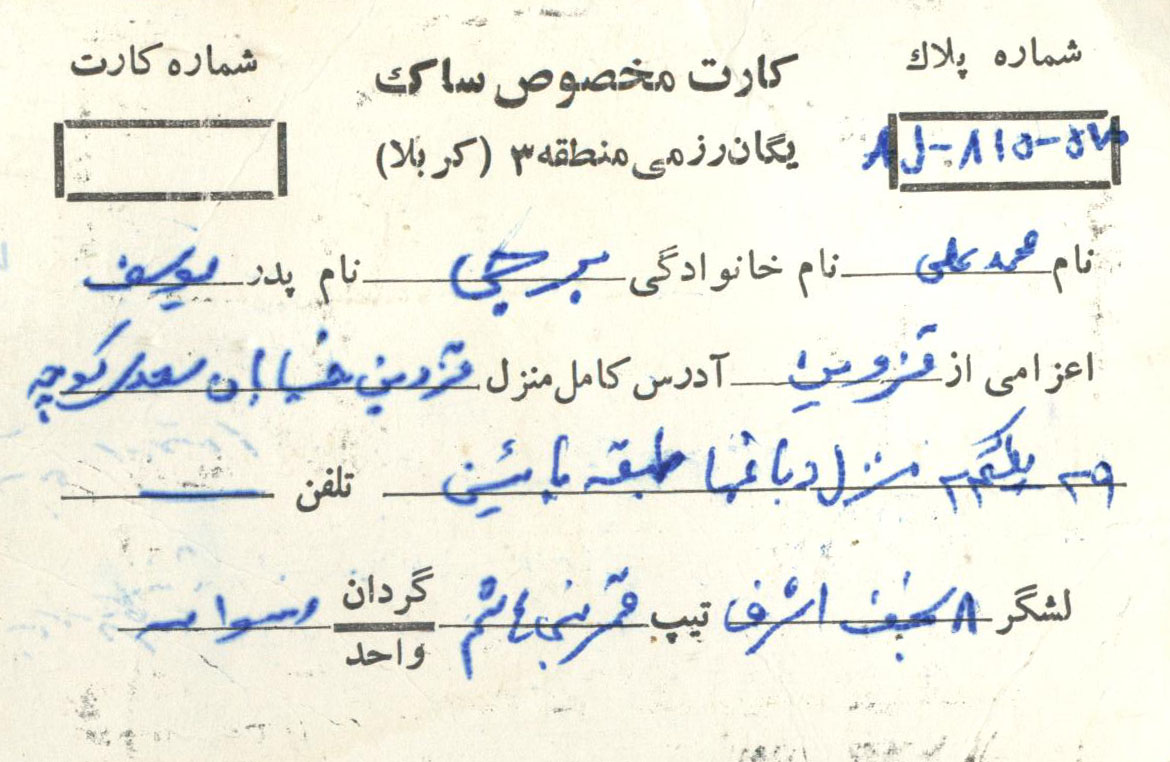 شماره پلاك کارت مخصوص ساك شماره کارت
AJ-۸۱۵-۵۷۰
یگان رزمی منطقه ۳ (کربلا)
نام محمد علی نام خانوادگی برجی نام پدر یوسف
اعزامی از قزوین آدرس کامل منزل قزوین خیابان سعدی کوچه
۳۹ پلاک ۲۳ منزل دباغیها طبقه پائین تلفن ــ
لشگر ۸ نجف اشرف تیپ قمر بنی هاشم گردان
واحد